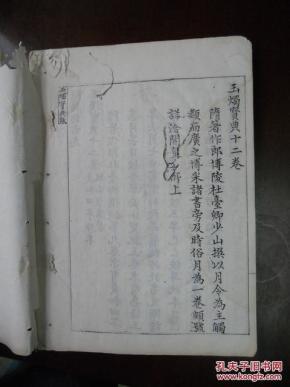 玉燭寶典十二卷
隋著作郎博陵杜臺卿少山撰以月令為主觸
類而廣之博采諸書旁及時俗月為一卷頗號
詳洽開皇中所上